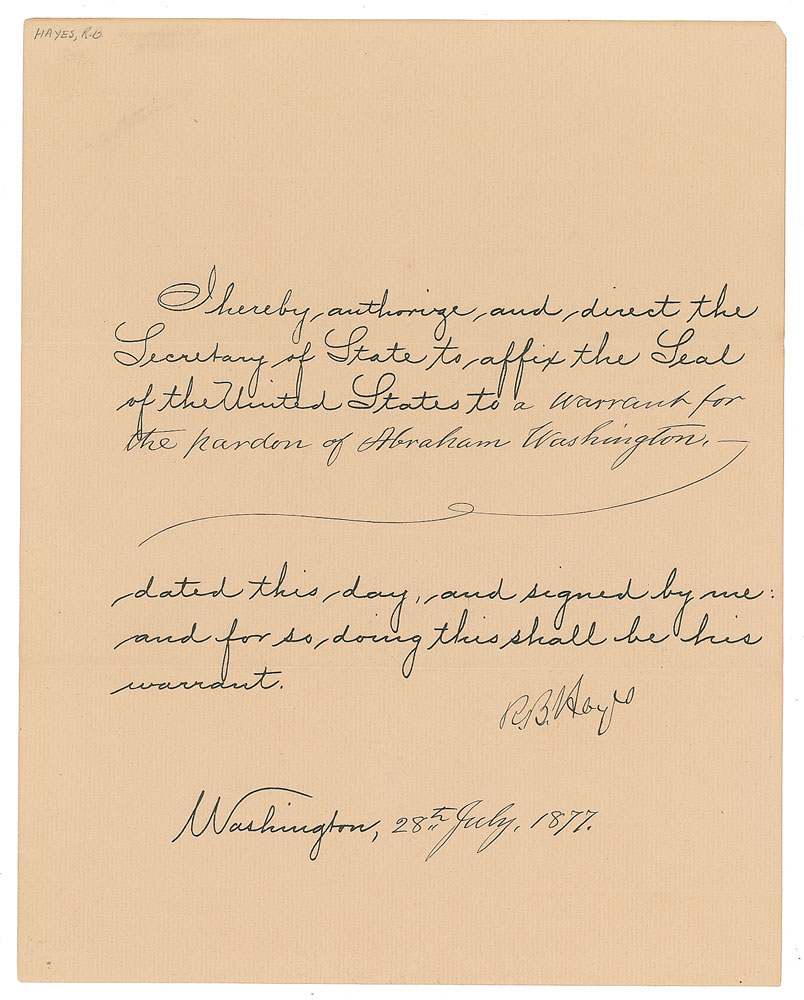 HAYES, R.B.
I hereby authorize and direct the
Secretary of State to affix the Seal
of the United States to a warrant for
the pardon of Abraham Washington. —
dated this day, and signed by me:
and for so doing this shall be his
warrant.
R.B. Hayes
Washington, 28th July, 1877.